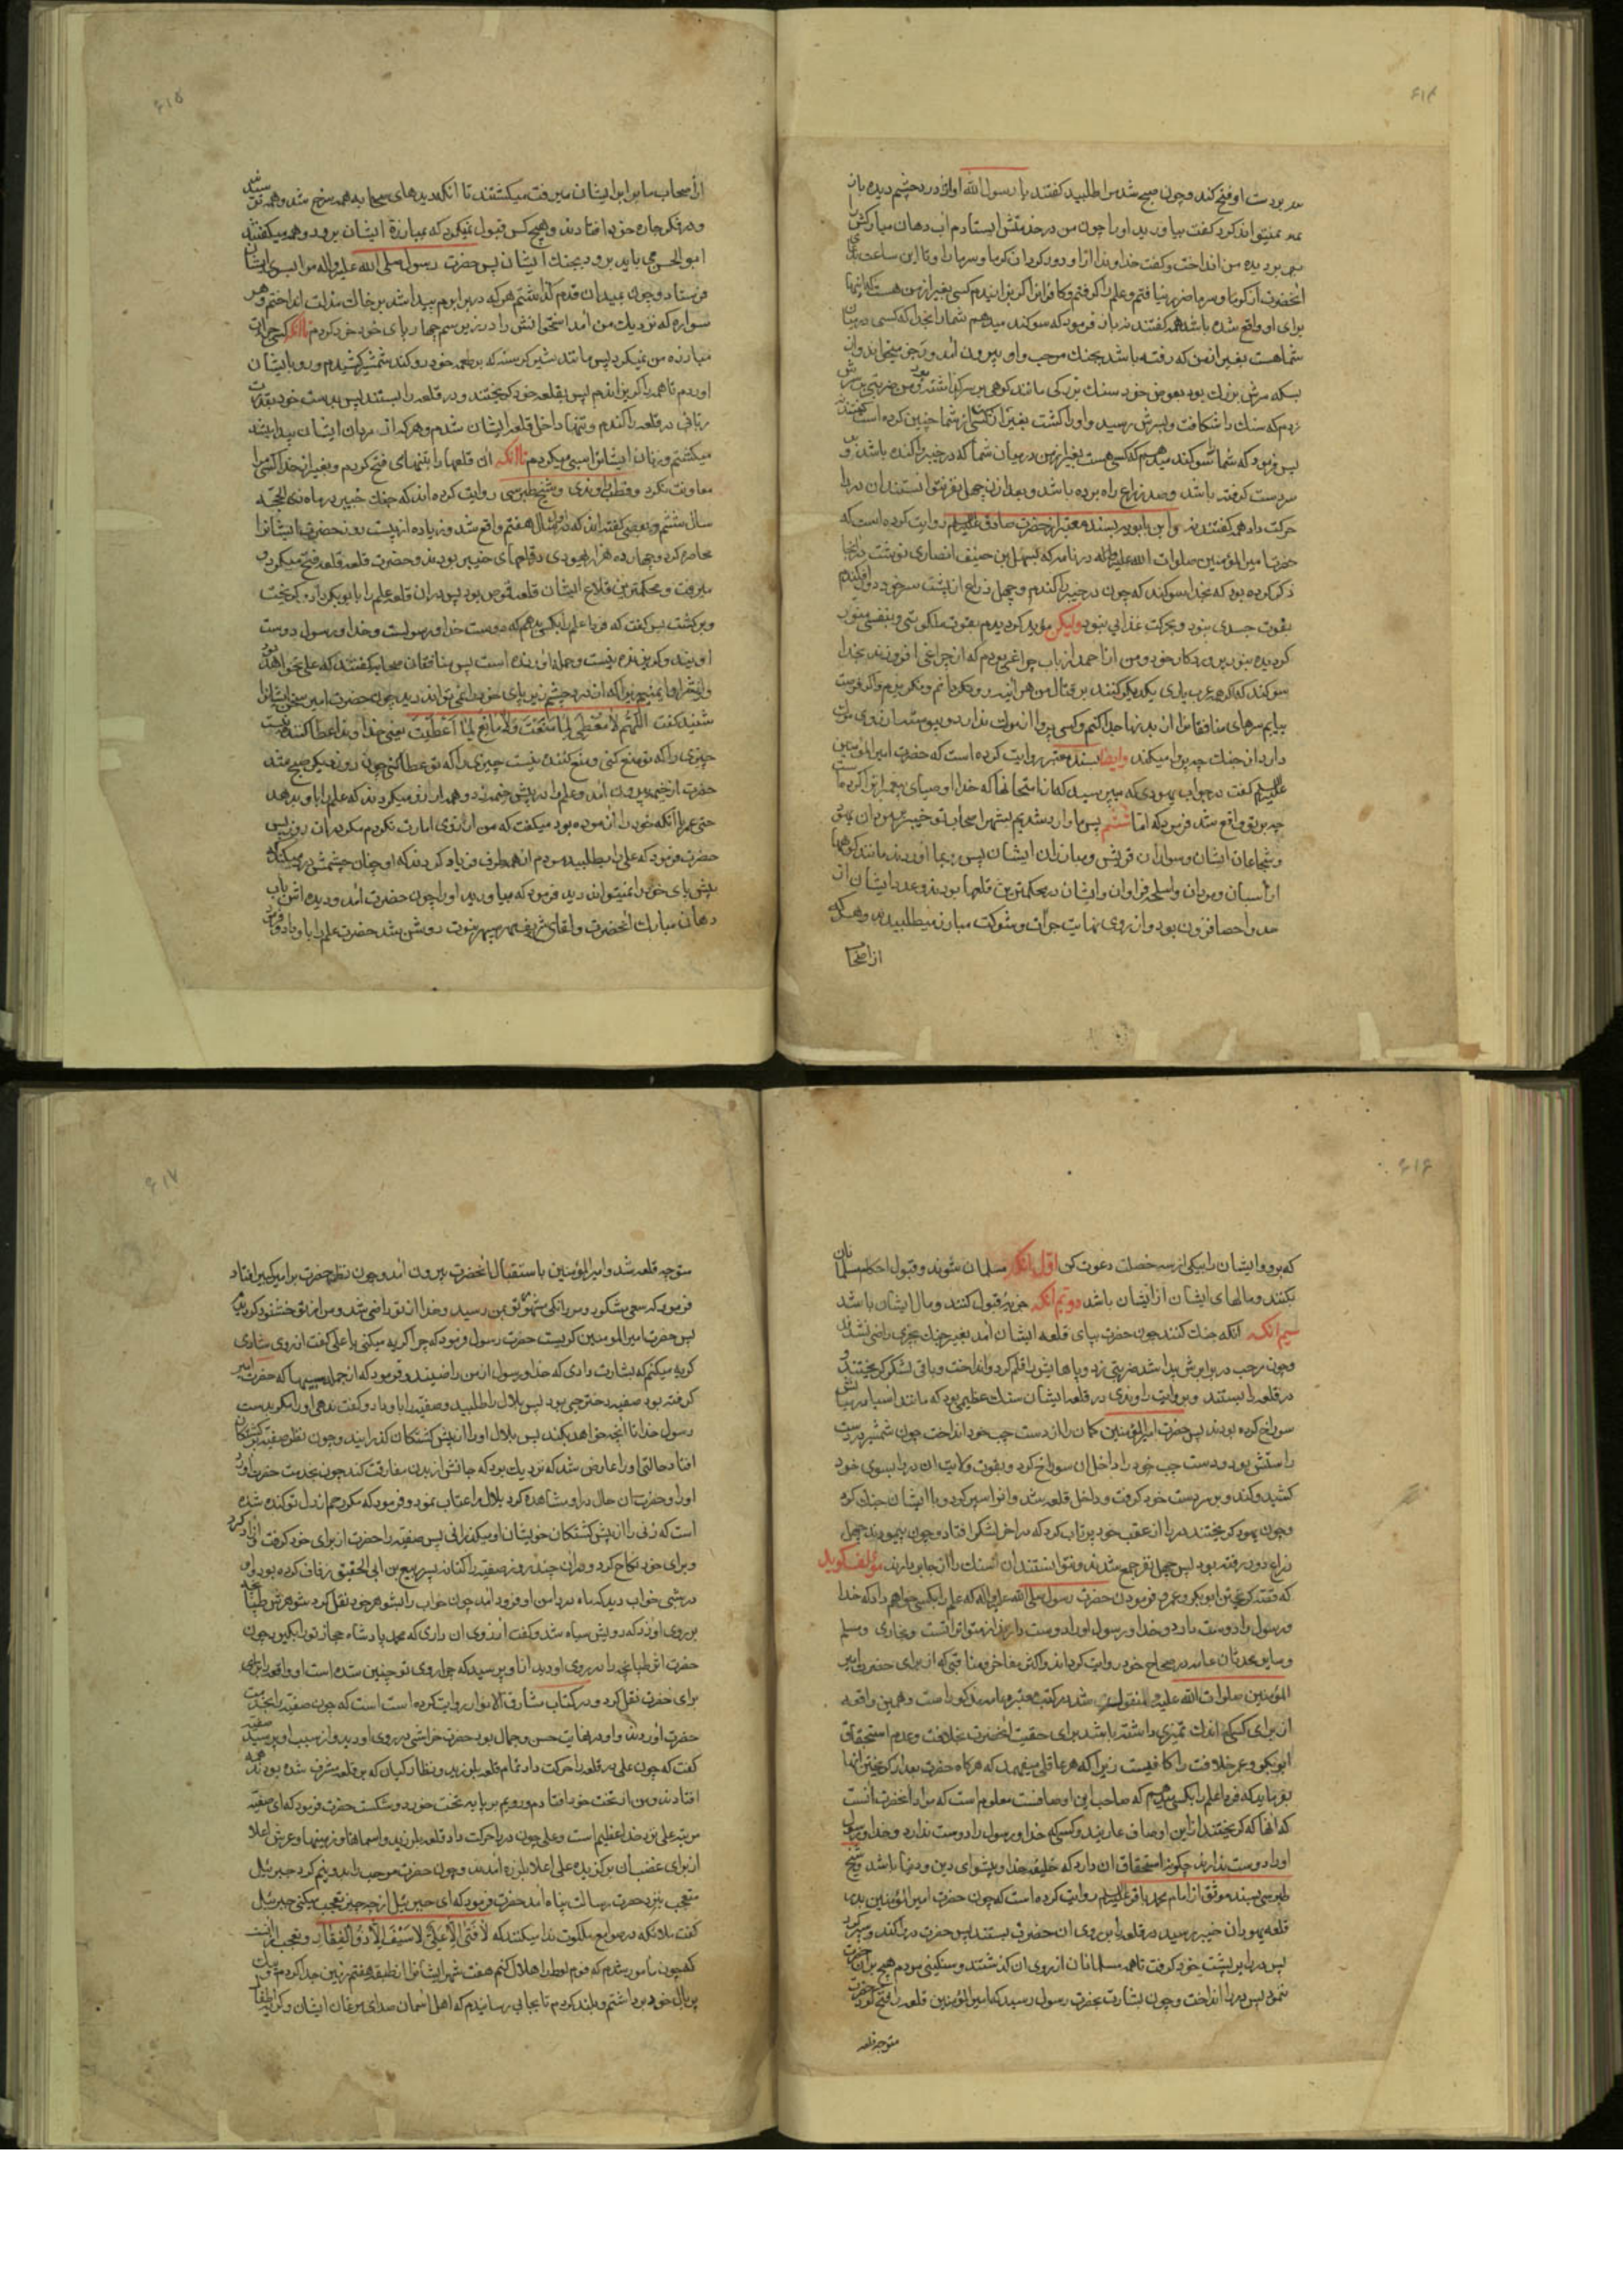 ۶۱۴
بر دست او فتح کند و چون صبح شد مرا طلبید گفتند یا رسول الله او از درد چشم دیده باز
نمیتواند کرد گفت بیاورید او را چون من در خدمتش ایستادم آب دهان مبارکش
بر دیده من انداخت و گفت خداوندا از او دور گردان گرما و سرما را و تا این ساعت
آنحضرت از گرما و سرما ضرر نیافتم و علم را گرفتم و کافرانرا گریزانیدم کسی بغیر از من هست که اینها
برای او واقع شده باشد همه گفتند نه باز فرمود که سوگند میدهم شما را بخدا که کسی در میان
شما هست بغیر از من که رفته باشد بجنک مرحب و او بیرون آمد و رجز میخواند و از
بسکه سرش بزرك بود بعوض خود سنك بزرگی مانند کوهی بر سر گذاشته بود و من ضربتی بر سرش
زدم که سنك را شکافت و بسرش رسید و او را کشت بغیر از من کسی از شما چنین کرده است گفتند نه
پس فرمود که شما را سوگند میدهم که کسی هست بغیر از من در میان شما که در خیبر را کنده باشد و
بر دست گرفته باشد و صد ذراع راه برده باشد و بعد از آن چهل نفر نتوانستند آن در را
حرکت داد همه گفتند نه و ابن بابویه بسند معتبر از حضرت صادق علیه السلام روایت کرده است که
حضرت امیر المؤمنین صلوات الله علیه در نامه که بسهل بن حنیف انصاری نوشت در آنجا
ذکر کرده بود که بخدا سوگند که چون در خیبر را کندم و چهل ذراع از پشت سر خود دور افکندم
بقوت جسدی نبود و بحرکت غذایی نبود ولیکن مؤید گردیدم بقوت ملکوتی و بنفسی منور
گردیده بنور پروردگار خود و من از احمد از باب چراغی بودم که از چراغی افروزند بخدا
سوگند که اگر همه عرب یاری یکدیگر کنند بر قتال من هر آینه رو نگردانم و نگریزم و اگر فرصت
بیابم سرهای منافقانرا از بدنها جدا کنم و کسی پروا از مرك ندارد
دارد از جنك چه پروا میکند وایضا بسند معتبر روایت کرده است که حضرت امیر المؤمنین
علیه السلام گفت در جواب یهودی که میپرسید که از امتحانها که خدا اوصیای پیغمبرانرا کرده است
چه بر تو واقع شد فرمود که اما ششم پس ما وارد شدیم بشهر اصحاب تو خیبر بر مردان یهود
و شجاعان ایشان و سواران قریش و مبارزان ایشان پس بر ما آوردند مانند کوهها
از اسبان و مردان و اسلحه فراوان و ایشان در محکمترین قلعها بودند و عدد ایشان از
حد و احصا افزون بود و از روی نهایت جرأت و شوکت مبارز میطلبیدند و هر که
از اصحاب
۶۱۵
از اصحاب ما برابر ایشان میرفت میکشتند تا آنکه دیدهای صحابه همه سرخ شد و همه ترسیدند
و در فکر چاره خود افتادند و هیچ کس قبول نمیکرد که بمبارزه ایشان برود و همه میگفتند
ابوالحسن می باید برود بجنك ایشان پس حضرت رسول صلی الله علیه واله مرا بسوی ایشان
فرستاد و چون بمیدان قدم گذاشتم هر که در برابرم پیدا شد بر خاك مذلت انداختم و هر
سواره که نزدیك من آمد استخوانش را در زیر سم چهارپای خود خورد کردم تا آنکه کسی جرأت
مبارزه من نمیکرد پس مانند شیر گرسنه که بر طعمه خود رو کند شمشیر کشیدم و رو بایشان
آوردم تا همه را گریزاندم پس بقلعه خود گریختند و در قلعه را بستند پس بدست خود بقدرت
ربانی در قلعه را کندم و تنها داخل قلعه ایشان شدم و هر که از مردان ایشان پیدا میشد
میکشتم و زنان ایشانرا اسیر میکردم تا آنکه آن قلعها را بتنهای فتح کردم و بغیر از خدا کسی مرا
معاونت نکرد و قطب راوندی و شیخ طبرسی روایت کرده اند که جنك خیبر در ماه ذی الحجه
سال ششم و بعضی گفته اند که در اول سال هفتم واقع شد و زیاده از بیست روز حضرت ایشانرا
محاصره کرد و چهارده هزار یهودی در قلعهای خیبر بودند و حضرت قلعه قلعه فتح میکرد و
میرفت و محکمترین قلاع ایشان قلعه قموص بود پس در آن قلعه علم را بابوبکر داد و گریخت
و برگشت پس گفت که فردا علم را بکسی بدهم که دوست خدا و رسولست و خدا و رسول دوست
اویند و گریزنده نیست و حمله آورنده است پس منافقان صحابه گفتند که علی نخواهد بود
زیرا که از درد چشم زیر پای خود را نمی تواند دید چون حضرت امیر سخن ایشانرا
شنید گفت اللهم لا معطی لما منعت ولا مانع لما اعطیت یعنی خداوندا عطا کننده نیست
چیزی را که تو منع کنی و منع کننده نیست چیزی را که تو عطا کنی چون روز دیگر صبح شد
حضرت از خیمه بیرون آمد و علم را در پیش خیمه زد و همه آرزو میکردند که علم را باو بدهد
حتی عمر با آنکه خود را آزموده بود میگفت که من آرزوی امارت نکردم مگر در آن روز پس
حضرت فرمود که علی را بطلبید مردم از همه طرف فریاد کردند که او چنان چشمش درد میکند که
پیش پای خود را نمیتواند دید فرمود که بیاورید او را چون حضرت آمد و دیده اش باب
دهان مبارك آنحضرت و لقای شریف مهر سپهر نبوت روشن شد حضرت علم را باو داد و فرمود
۶۱۶
که برو و ایشان را بیکی از سه خصلت دعوت کن اول آنکه مسلمان شوند و قبول احکام مسلمانان
بکنند و مالهای ایشان از ایشان باشد دویم آنکه جزیه قبول کنند و مال ایشان باشد
سیم آنکه آنکه جنك کنند چون حضرت بپای قلعه ایشان آمد بغیر جنك بچیزی راضی نشدند
و چون مرحب در برابرش پیدا شد ضربتی زد و پاهایش را قلم کرد و انداخت و باقی لشکر گریختند و
در قلعه را بستند و بروایت راوندی در قلعه ایشان سنك عظیمی بود که مانند آسیا در میانش
سوراخ کرده بودند پس حضرت امیر المؤمنین کمان را از دست چپ خود انداخت چون شمشیر در دست
راستش بود و دست چپ خود را داخل آن سوراخ کرد و بقوت ولایت آن در را بسوی خود
کشید و کند و بر سر دست خود گرفت و داخل قلعه شد و آنرا سپر کرد و با ایشان جنك کرد
و چون یهود گریختند در را از عقب خود پرتاب کرد که در آخر لشکر افتاد و چون پیمودند چهل
ذراع دور رفته بود پس چهل نفر جمع شدند و نتوانستند آن سنك را از جا بردارند مؤلف گوید
که قصه گریختن ابوبکر و عمر و فرمودن حضرت رسول صلی الله علیه واله که علم را بکسی خواهم داد که خدا
و رسول را دوست دارد و خدا و رسول او را دوست دارند از متواتراتست و بخاری و مسلم
و سایر محدثان عامه در صحاح خود روایت کرده اند و اکثر مفاخر و مناقبی که از برای حضرت امیر
المؤمنین صلوات الله علیه منقول شد در کتب معتبره عامه مذکور است و همین واقعه
از برای کسیکه اندك تمیزی داشته باشد برای حقیت آنحضرت بخلافت و عدم استحقاق
ابوبکر و عمر خلافت را کافیست زیرا که هر عاقلی میفهمد که هر گاه حضرت بعد از گریختن آنها
بفرماید که فردا علم را بکسی میدهم که صاحب این اوصافست معلوم است که مراد آنحضرت آنست
که آنها که گریختند از این اوصاف عاریند و کسیکه خدا و رسول را دوست ندارد و خدا و رسول
او را دوست ندارند چگونه استحقاق آن دارد که خلیفه خدا و پیشوای دین و دنیا باشد و شیخ
طبرسی بسند موثق از امام محمد باقر علیه السلام روایت کرده است که چون حضرت امیر المؤمنین بدر
قلعه یهودان خیبر رسید در قلعه را بر روی آن حضرت بستند پس حضرت در را کند و سپر کرد
پس در را بر پشت خود گرفت تا همه مسلمانان از روی آن گذشتند و سنگینی مردم هیچ بر آن حضرت
ننمود پس در را انداخت و چون بشارت بحضرت رسول رسید که امیر المؤمنین قلعه را فتح کرد حضرت
متوجه قلعه
۶۱۷
متوجه قلعه شد و امیر المؤمنین باستقبال آنحضرت بیرون آمد و چون نظر حضرت بر امیر کبیر افتاد
فرمود که سعی مشکور و مردانگی مشهور تو بمن رسید و خدا از تو راضی شد و من از تو خشنود گردیدم
پس حضرت امیر المومنین گریست حضرت رسول فرمود که چرا گریه میکنی یا علی گفت از روی شادی
گریه میکنم که بشارت دادی که خدا و رسول از من راضیند و فرمود که از جمله سبیها که حضرت امیر
گرفته بود صفیه دختر حیی بود پس بلال را طلبید و صفیه را باو داد و گفت ندهی او را مگر بدست
رسول خدا تا آنچه خواهد بکند پس بلال او را از پیش کشتگان گذرانید و چون نظر صفیه بر کشتگان
افتاد حالتی او را عارض شد که نزدیك بود که جانش از بدن مفارقت کند چون بخدمت حضرت آورد
او را و حضرت آن حال در او مشاهده کرد بلال را عتاب نمود و فرمود که مگر رحم از دل تو کنده شده
است که زنی را از پیش کشتگان خویشان او میگذرانی پس صفیه را حضرت از برای خود گرفت و آزاد کرد
و برای خود نکاح کرد و در آن چند روز صفیه را کنانه پسر ربیع بن ابی الحقیق زفاف کرده بود و او
در شبی خواب دید که ماه در دامن او فرود آمد چون خواب را بشوهر خود نقل کرد شوهرش طپانچه
بر روی او زد که رویش سیاه شد و گفت آرزوی آن داری که محمد پادشاه حجاز تو را بگیرد چون
حضرت اثر طپانچه را در روی او دید از او پرسید که چرا روی تو چنین شده است او واقعه را برای
برای حضرت نقل کرد و در کتاب مشارق الانوار روایت کرده است است که چون صفیه را بخدمت
حضرت آوردند و او در نهایت حسن و جمال بود حضرت خراشی در روی او دید و از سبب او پرسید صفیه
گفت که چون علی در قلعه را حرکت داد تمام قلعه بلرزید و نظارگیان که بر قلعه مشرف شده بودند همه
افتادند و من از تخت خود افتادم و رویم بر پایه تخت خورد و شکست حضرت فرمود که ای صفیه
مرتبه علی نزد خدا عظیم است و علی چون در را حرکت داد قلعه بلرزید و آسمانها و زمینها و عرش اعلا
از برای غضب آن برگزیده علی اعلا بلرزه آمدند و چون حضرت مرحب را بدو نیم کرد جبرئیل
متعجب بنزد حضرت رسالت پناه آمد حضرت فرمود که ای جبرئیل از چه چیز تعجب میکنی جبرئیل
گفت ملائکه در صوامع ملکوت ندا میکنند که لا فتی الا علی لا سیف الا ذوالفقار و تعجب از آنست
که چون مأمور شدم که قوم لوط را هلاك کنم هفت شهر ایشانرا از طبقه هفتم زمین جدا کردم
بر بال خود برداشتم و بلند کردم تا بجایی رسانیدم که اهل آسمان صدای مرغان ایشان و گریه اطفال